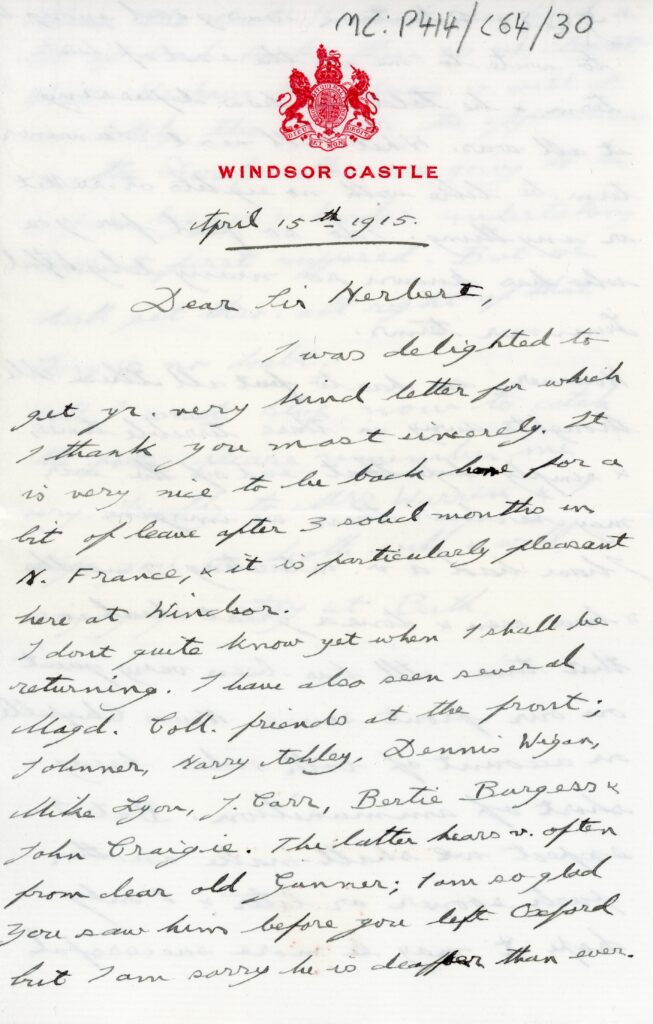 MC: P414/C64/30
WINDSOR CASTLE
April 15th 1915.
Dear Sir Herbert,
I was delighted to
get yr. very kind letter for which
I thank you most sincerely. It
is very nice to be back here for a
bit of leave after 3 solid months in
N. France, & it is particularly pleasant
here at Windsor.
I dont quite know yet when I shall be
returning. I have also seen several
Magd. Coll. friends at the front;
Harry Ashley, Dennis Wigan,
Mike Lyon, J. Carr, Bertie Burgess &
John Craigie. The latter hears v. often
from dear old Gunner; I am so glad
you saw him before you left Oxford
but I am sorry he is deafer than ever.